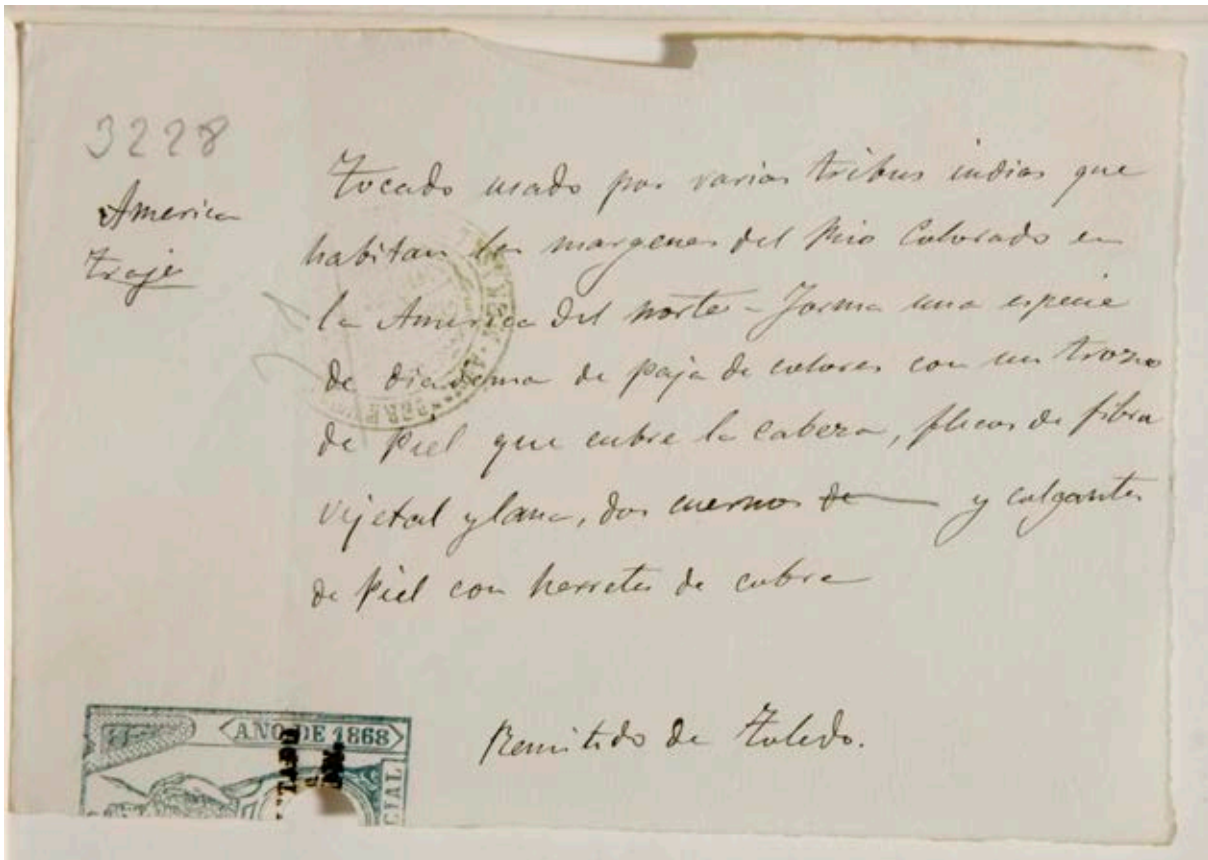 3228
America
traje
Tocado usado por varias tribus indias que
habitan las margenes del Rio Colorado en
la America del norte - Forma una especie
de diadema de paja de colores con un trozo
de piel que cubre la cabeza, flecos de fibra
vejetal y lana, dos cuernos de y colgantes
de piel con herretes de cobre
Remitido de Toledo.
AÑO DE 1868